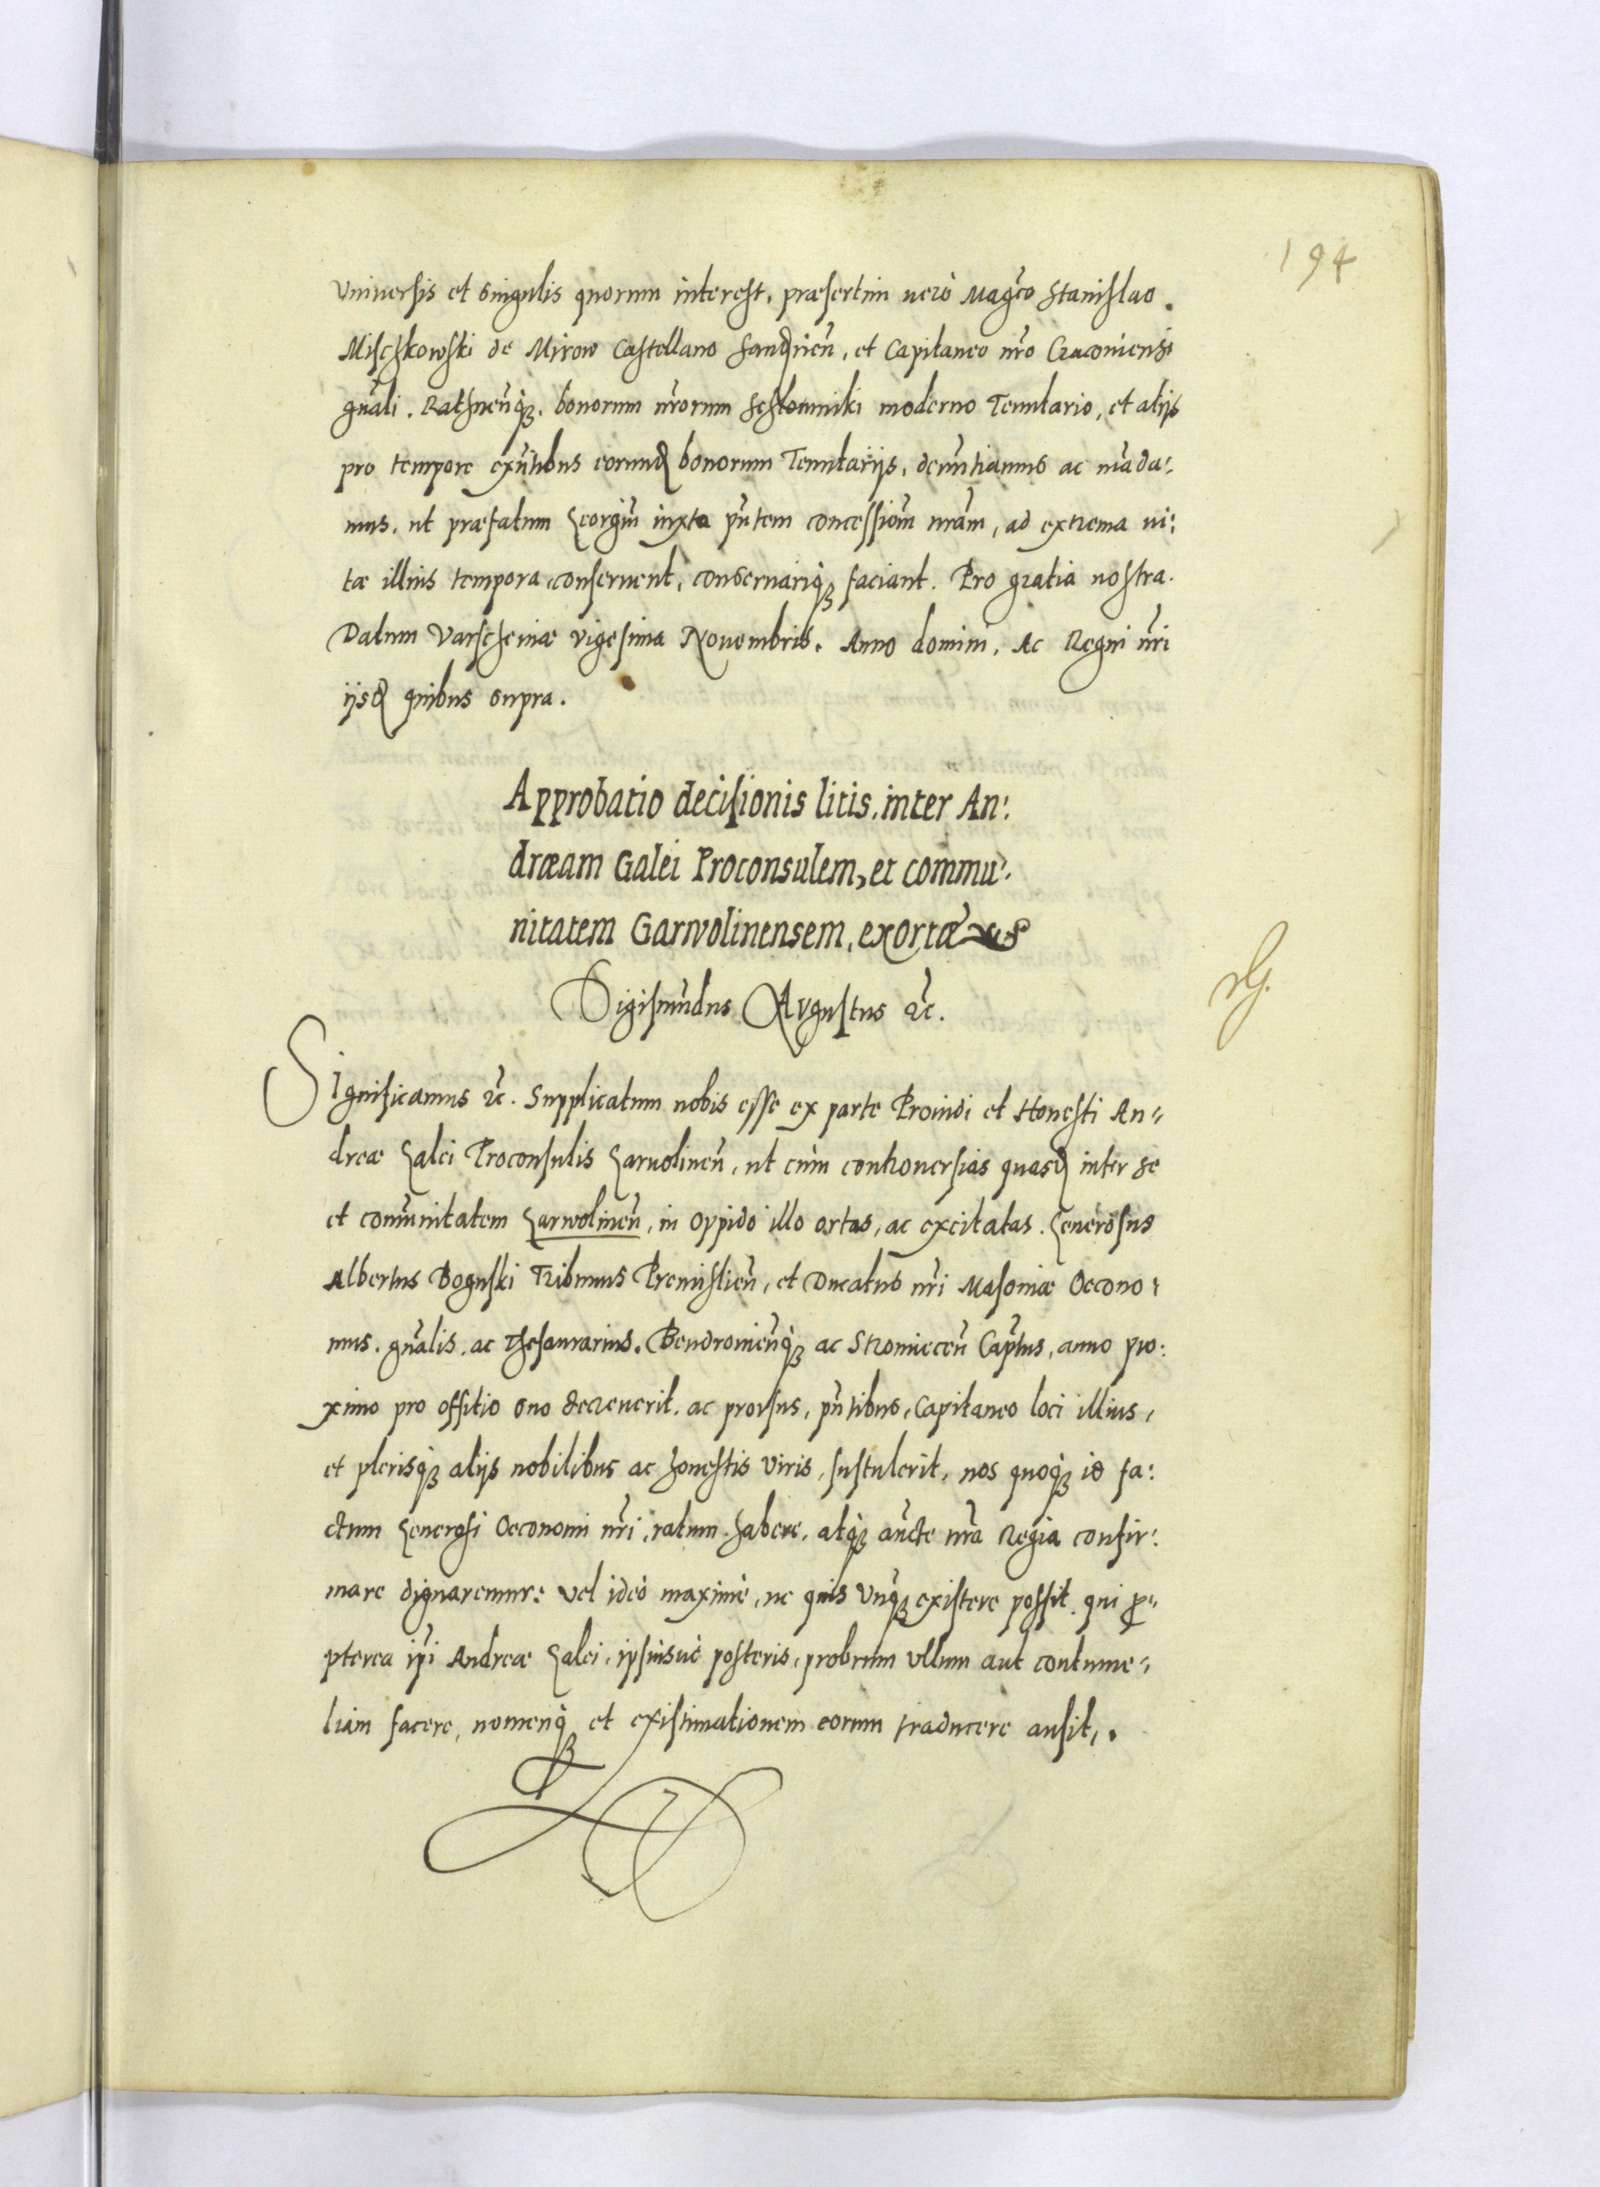 194
Vniuersis et singulis quorum interest, præsertim uerò Magco Stanislao.
Mischkowski de Mirow Castellano Sandrien̄, et Capitaneo nr̄o Cracouiensi
gn̄ali. Rathnen̄q3. bonorum nr̄orum moderno Tenutario, et alijs
pro tempore exn̄tibus eorund bonorum Tenutarijs, denn̄tiamus ac mādа:
mus, ut præfatum Georgiū iuxta pn̄tem concessiom̄ nram̄, ad extrema ui:
tæ illius tempora, conseruent, conseruariq3 faciant. Pro gratia nostra.
Datum Varscheuiæ vigesima Nouembris. Anno domini, Ac Regni nr̄i
ijsd quibus supra.
Approbatio decisionis litis, inter An:
dræam Galei Proconsulem, et commu:
nitatem Garwolinensem, exortæ
Sigismūdus Augustus ⁊c̄.
Significamus ⁊c̄. Supplicatum nobis esse ex parte Prouidi et Honesti An:
dreæ Galei Proconsulis Garuolinen̄, ut cùm controuersias quasd inter se
et com̄unitatem Garwolinen̄, in oppido illo ortas, ac excitatas. Generosus
Albertus Boguski Tribunus Premislien̄, et Ducatus nr̄i Masouiæ Oecono:
mus. gn̄alis. ac Thesaurarius. Bendrouien̄q3 ac Stromiecen̄ Capn̄tus, anno pro:
ximo pro offitio suo decreuerit. ac prorsus, pn̄tibus, Capitaneo loci illius,
et plerisq3 alijs nobilibus ac honestis viris, sustulerit, nos quoq3 id fa:
ctum Generosi Oeconomi nr̄i, ratum habere, atq3 aūcte nr̄a Regia confir:
mare dignaremur: vel ideò maximè, ne quis Unq3 existere possit, qui p̱:
pterea ip̄i Andreæ Galei, ipsiusuè posteris, probrum ullum aut contume:
liam facere, nomenq3 et existimationem eorum traducere ausit,.